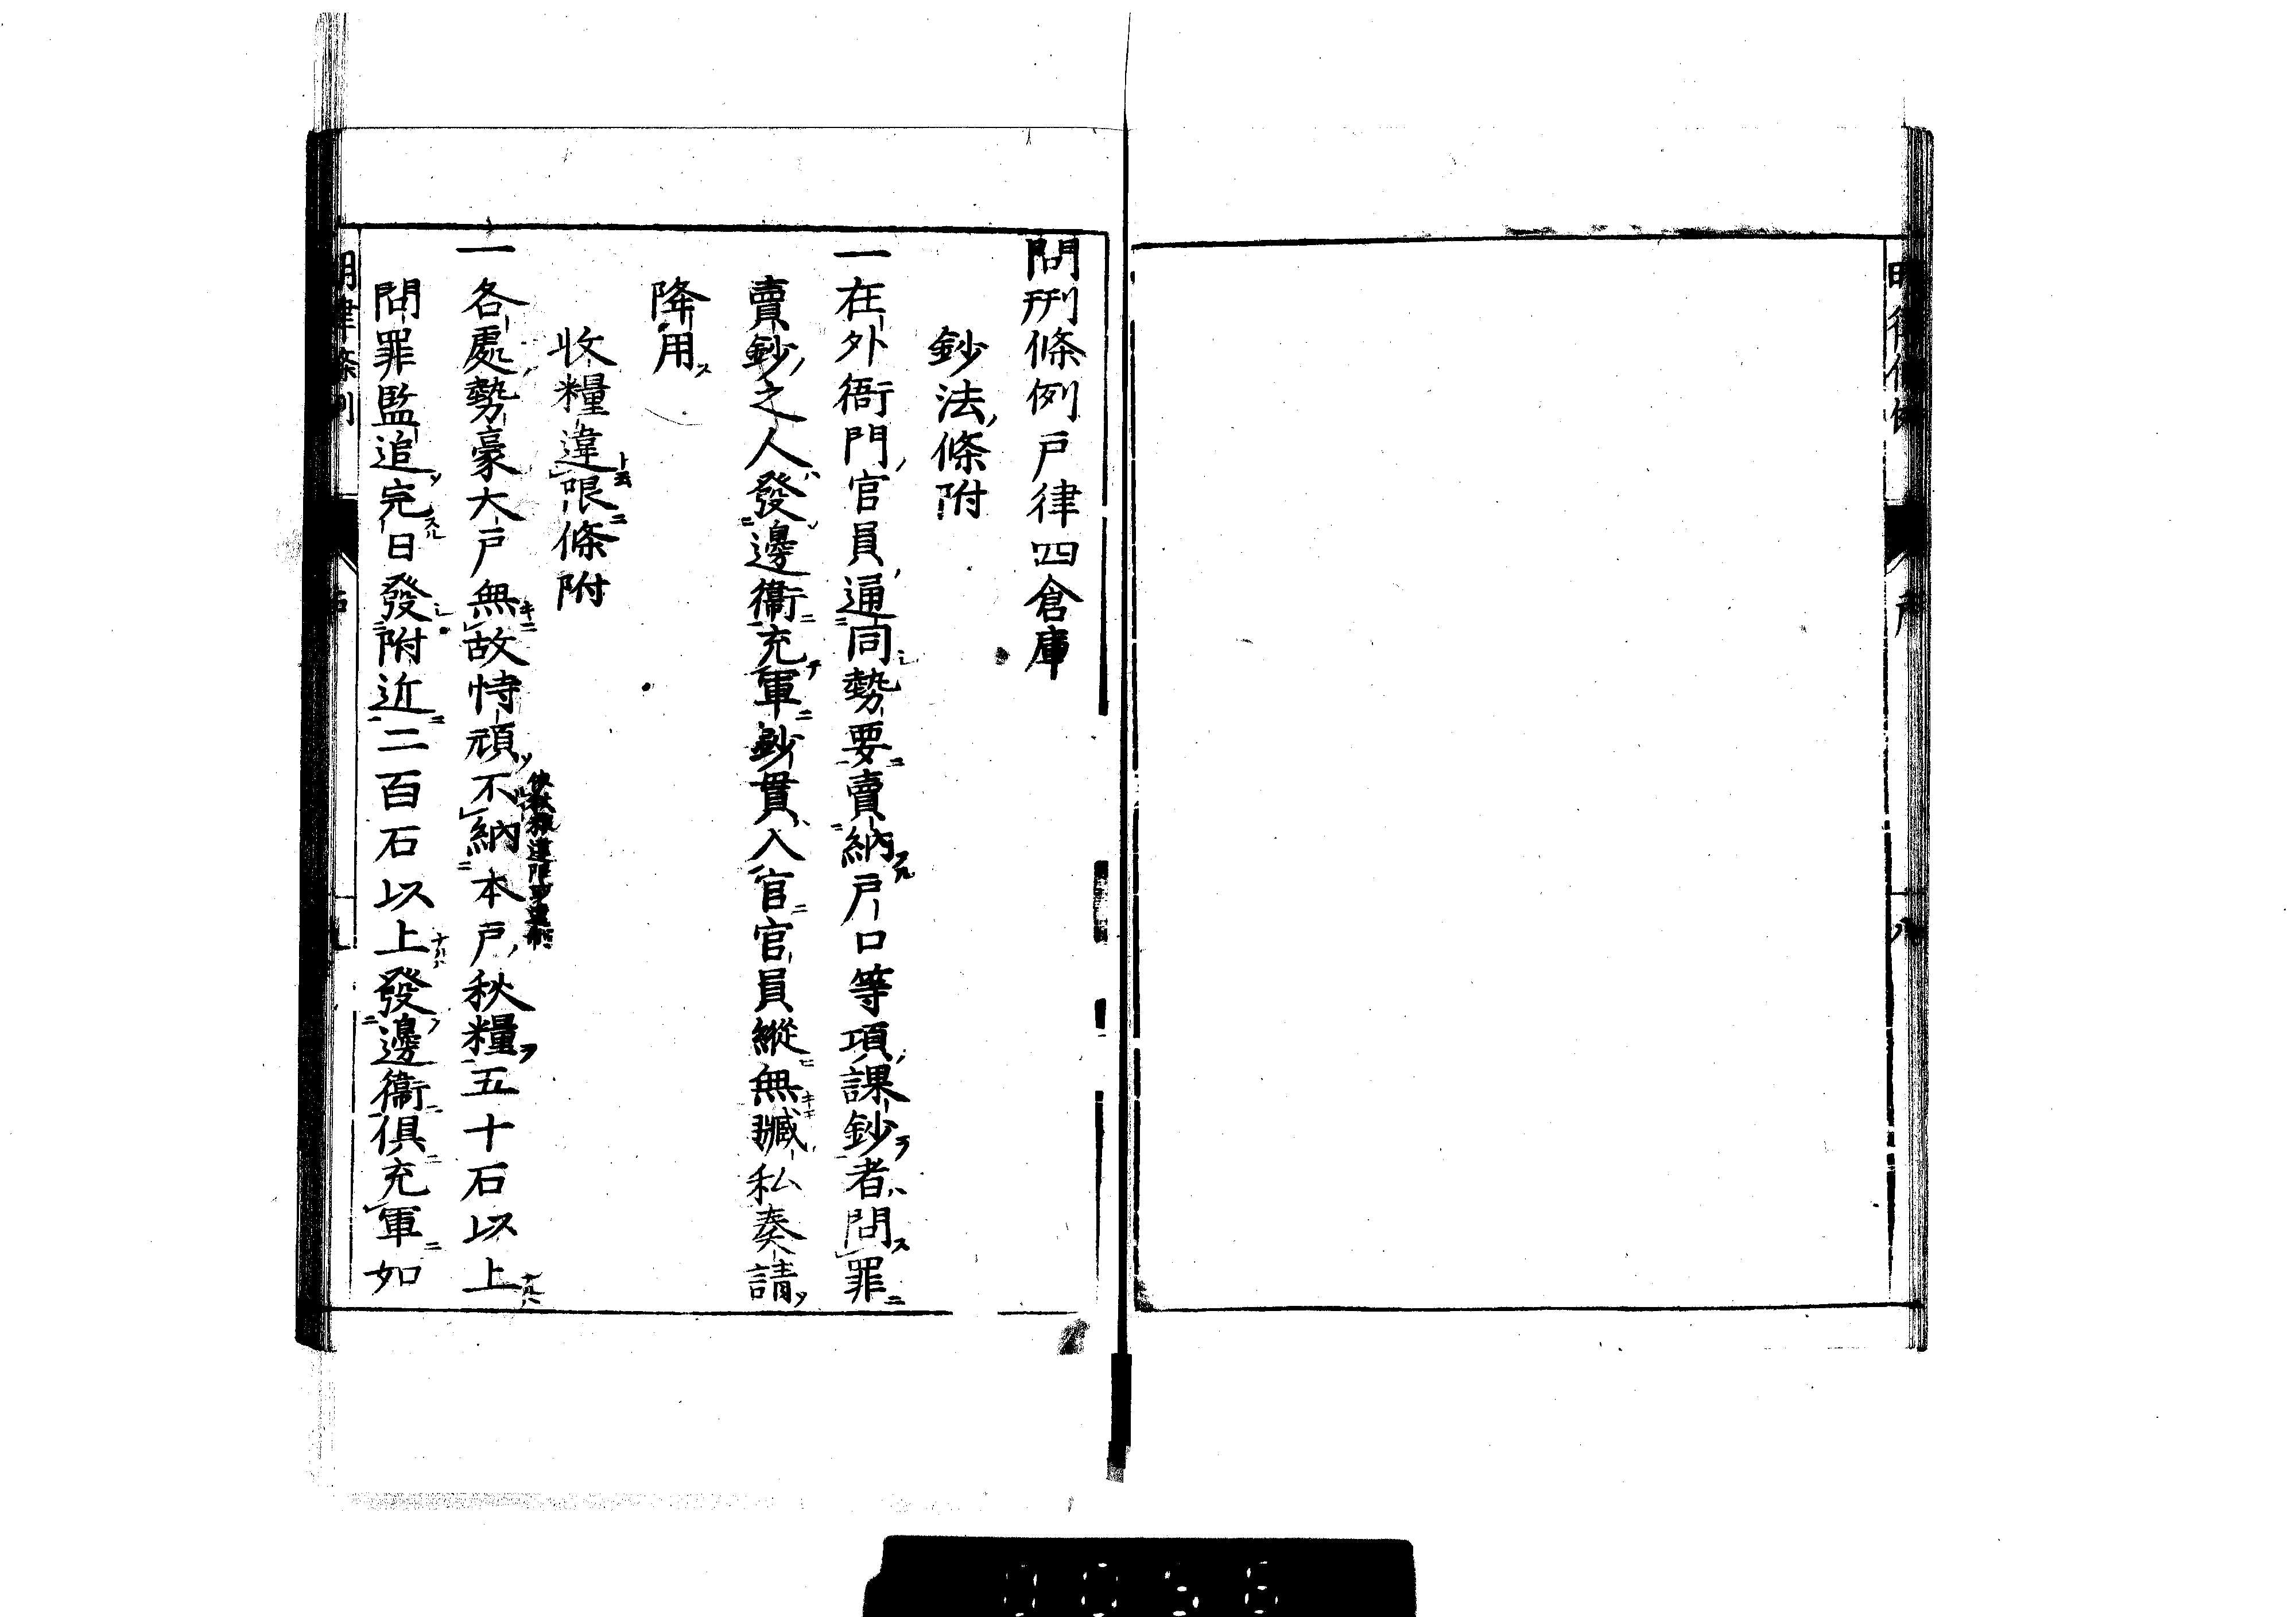 問刑條例戶律四倉庫
鈔法條附
一在外衙門官員通同勢要賣納戶口等項課鈔者問罪
賣鈔之人發邊衞充軍鈔貫入官官員縱無贓私奏請
降用
收糧違限條附
一各處勢豪大戶無故恃頑不納本戶秋糧五十石以上
問罪監追完日發附近二百石以上發邊衞俱充軍如